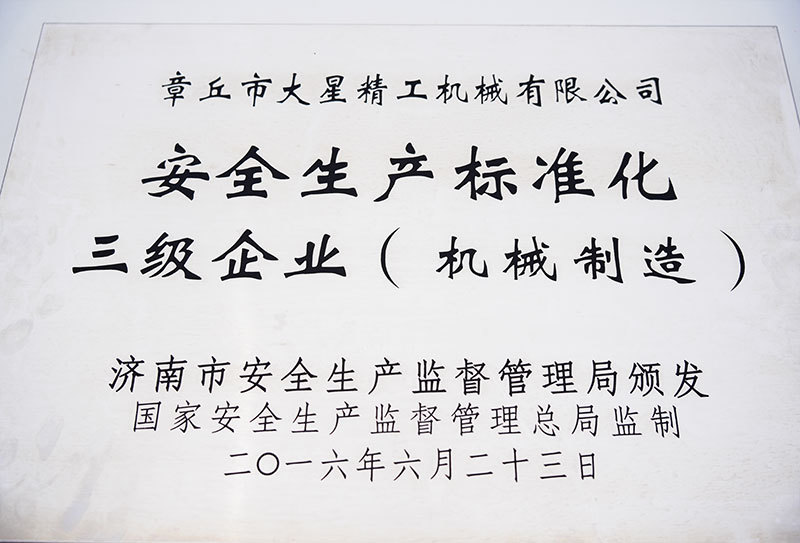 章丘市大星精工机械有限公司
安全生产标准化
三级企业（机械制造）
济南市安全生产监督管理局颁发
国家安全生产监督管理总局监制
二〇一六年六月二十三日